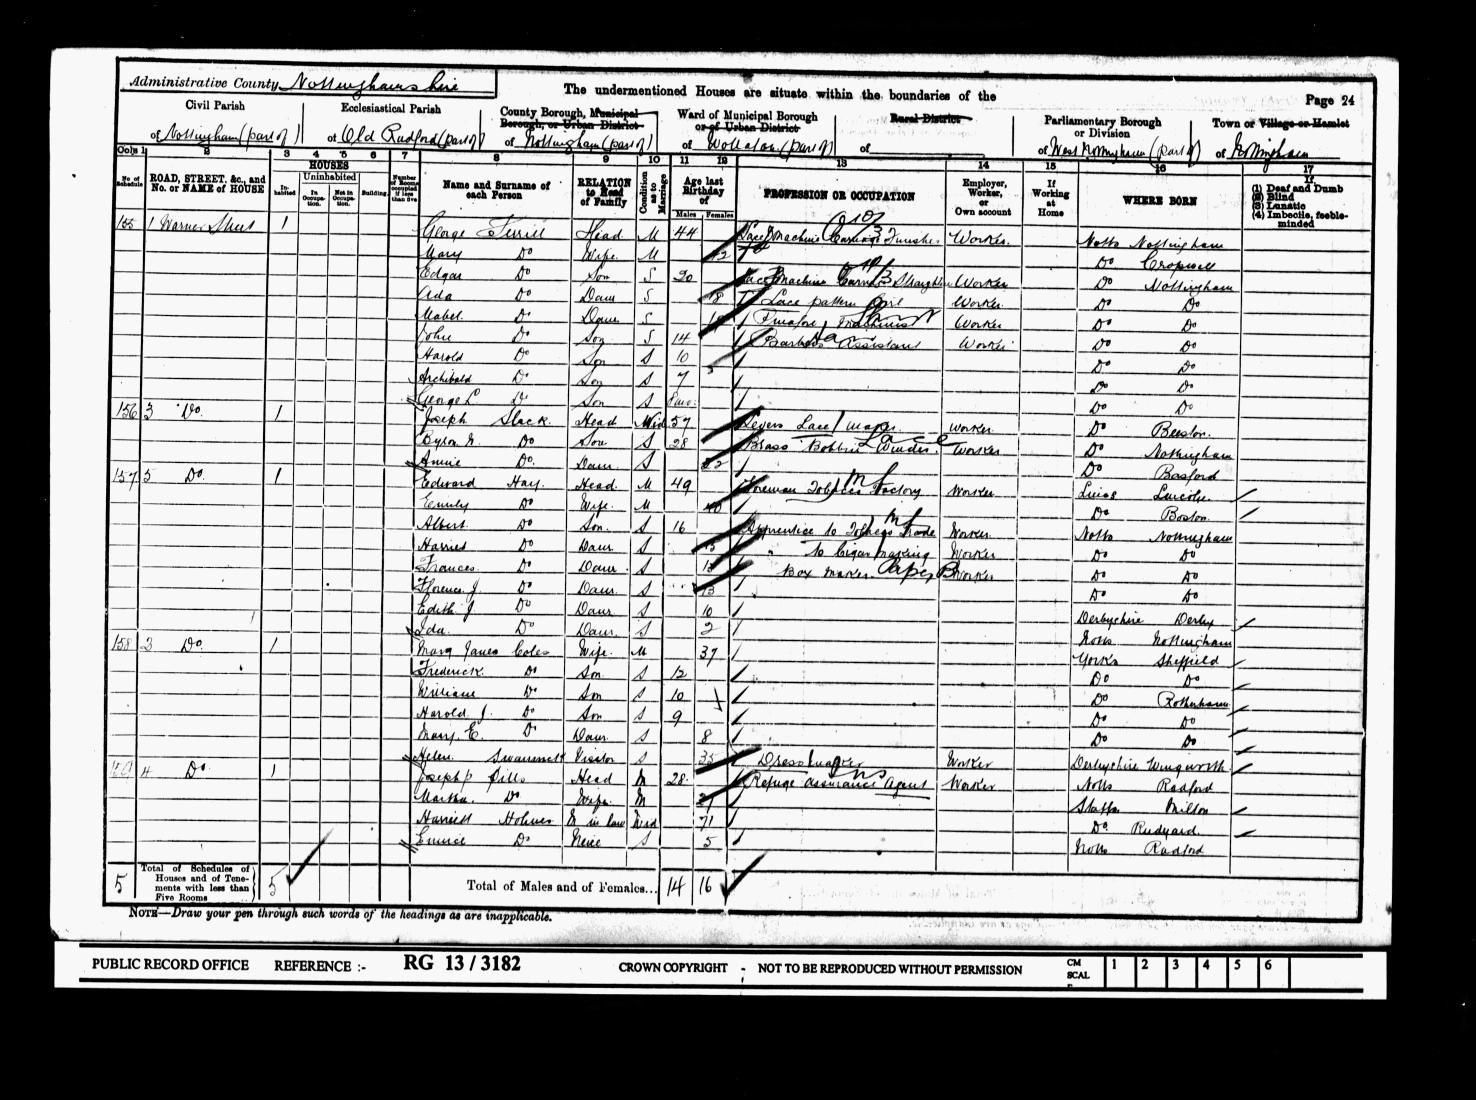 Administrative County Nottinghamshire
The undermentioned Houses are situate within the boundaries of the
Page 24
Civil Parish Ecclesiastical Parish County Borough, Municipal Borough, or Urban District Ward of Municipal Borough or of Urban District Rural District Parliamentary Borough or Division Town or Village or Hamlet
of Nottingham (part of) of Old Radford (part of) of Nottingham (part of) of Wollaton (part of) of of West Nottingham (part of) of Nottingham
Cols 1 2 3 4 5 6 7 8 9 10 11 12 13 14 15 16 17
No. of Schedule ROAD, STREET, &c., and No. or NAME of HOUSE HOUSES Inhabited Uninhabited In Occupation. Not in Occupation. Building. Number of Rooms occupied if less than five Name and Surname of each Person RELATION to Head of Family Condition as to Marriage Age last Birthday of Males Females PROFESSION OR OCCUPATION Employer, Worker, or Own account If Working at Home WHERE BORN If (1) Deaf and Dumb (2) Blind (3) Lunatic (4) Imbecile, feeble-minded
155 1 Warner Street 1 George Head M 44 Lace Machine Carriage Finisher Worker Notts Nottingham
Mary Do Wife M Do Cropwell
Edgar Do Son S 20 Lace Machine Worker Do Nottingham
Ada Do Daur S 18 Lace pattern Girl Worker Do Do
Mabel Do Daur S Pinafore Machinist Worker Do Do
John Do Son S 14 Barbers Assistant Worker Do Do
Harold Do Son S 10 Do Do
Archibald Do Son S 7 Do Do
George L Do Son S 8 mo. Do Do
156 3 Do. 1 Joseph Slack Head Wid 57 Levers Lace Maker Worker Do Beeston
Byron Do Son S 28 Brass Bobbin Winder Lace Worker Do Nottingham
Annie Do. Daur S 22 Do Basford
157 5 Do. 1 Edward Hay. Head M 49 Foreman Tobacco Factory Worker Lincs Lincoln
Emily Do Wife M 40 Do Boston
Albert Do Son. S 16 Apprentice to Tobacco Trade Worker Notts Nottingham
Harriet Do Daur S 15 " to Cigar making Worker Do Do
Frances Do Daur S Box maker Paper Worker Do Do
Florence J. Do Daur S 13 Do Do
Edith J Do Daur S 10 Derbyshire Derby
Ida. Do Daur. S 2 Notts Nottingham
158 3 Do. 1 Mary Janes Coles Wife M 37 Yorks Sheffield
Frederick Do Son S 12 Do Do
William Do Son S 10 Do Rotherham
Harold J. Do Son S 9 Do Do
Mary E. Do Daur S 8 Do Do
Helen Visitor S 35 Dressmaker Worker Derbyshire Wingworth
159 4 Do 1 Joseph P Sills Head M 28 Refuge assurance Agent Worker Notts Radford
Martha Do Wife M Staffs Milton
Harriett Holmes M in law Wid 71 Do Rudyard
Eunice Do Neice S 5 Notts Radford
5 Total of Schedules of Houses and of Tenements with less than Five Rooms 5 Total of Males and of Females... 14 16
NOTE—Draw your pen through such words of the headings as are inapplicable.
PUBLIC RECORD OFFICE REFERENCE :- RG 13 / 3182 CROWN COPYRIGHT - NOT TO BE REPRODUCED WITHOUT PERMISSION CM SCALE 1 2 3 4 5 6